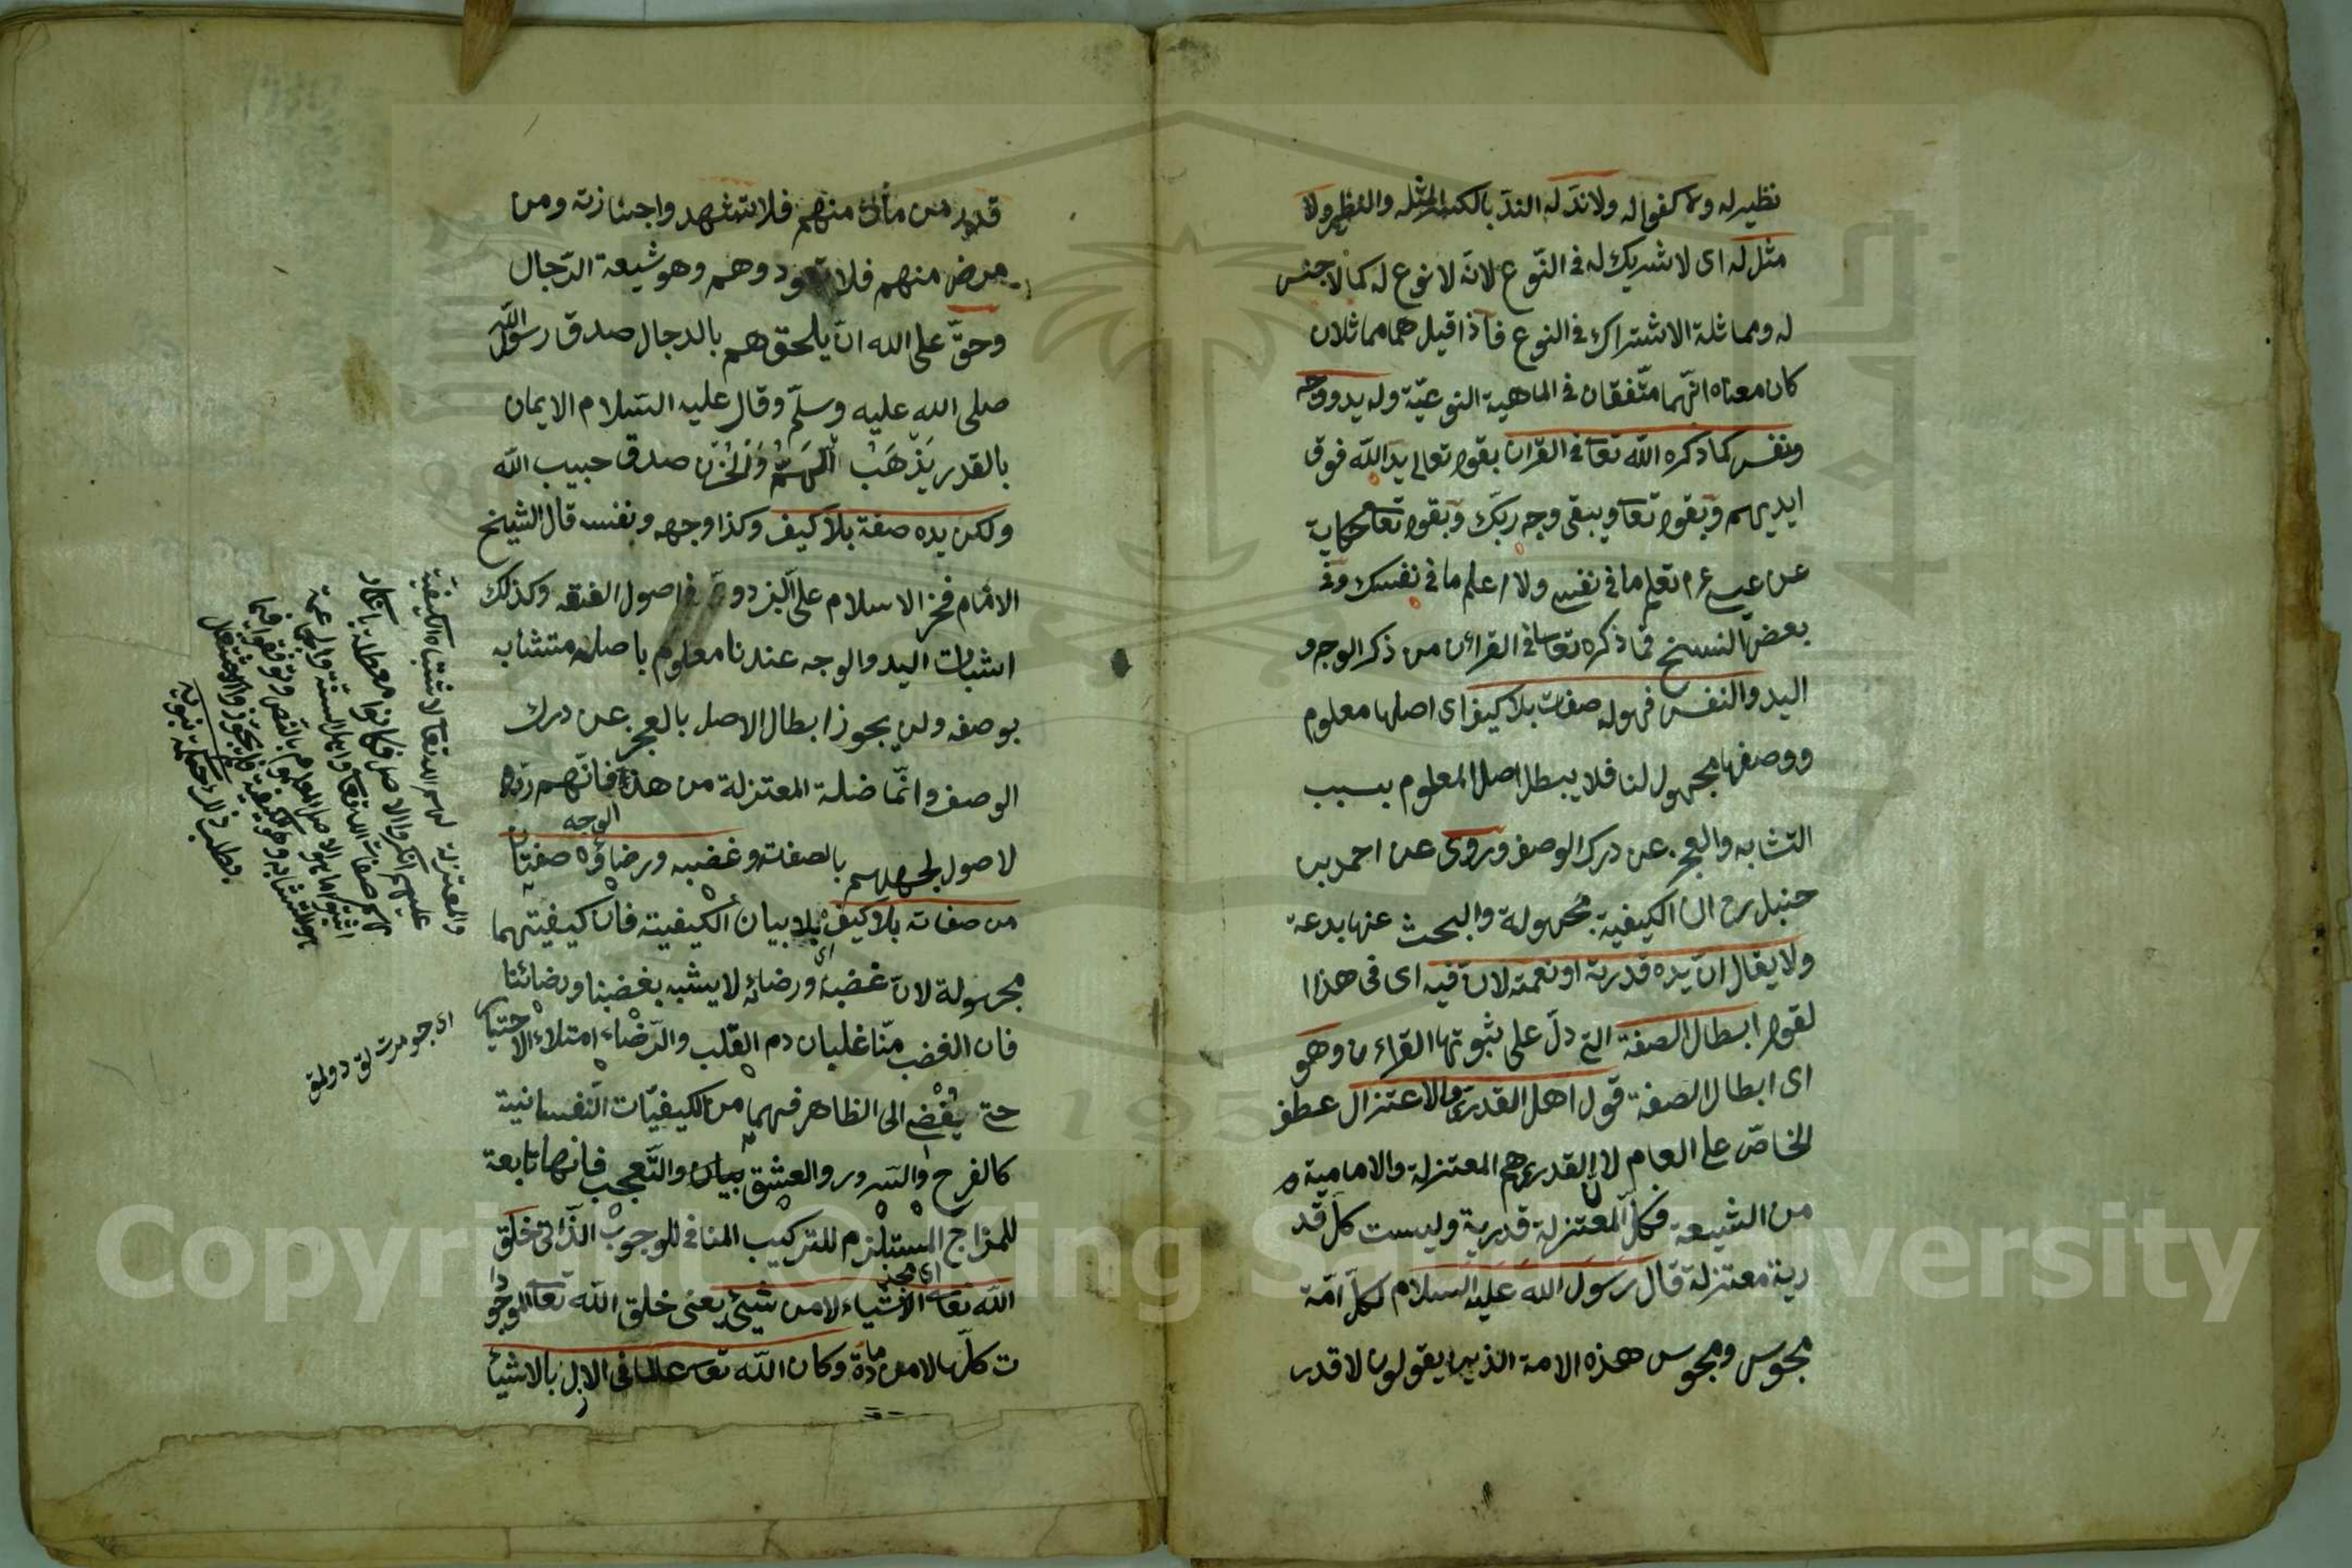 نظير له ولا كفوا له ولا ندّ له الندّ بالكسر المثل والنظير ولا
مثل له اى لا شريك له فى النّوع لانّه لا نوع له كما لا جنس
له ومماثلة الاشتراك فى النوع فاذا قيل هما مماثلان
كان معناه انّهما متّفقان فى الماهية النوعيّة وله يد ووجه
ونفس كما ذكره الله تعا فى القران بقوله تعالى يد الله فوق
ايديهم وبقوله تعا ويبقى وجه ربّك وبقوله تعا حكاية
عن عيسى ع م تعلم ما فى نفسى ولا اعلم ما فى نفسك وفى
بعض النسخ فما ذكره تعا فى القرائن من ذكر الوجه و
اليد والنفس فهو له صفات بلا كيف اى اصلها معلوم
ووصفها مجهول لنا فلا يبطل اصل المعلوم بسبب
التشابه والعجز عن درك الوصف وروى عن احمد بن
حنبل رح ان الكيفية مجهولة والبحث عنها بدعة
ولا يقال انّ يده قدرته او نعمته لانّ فيه اى فى هذا ا
لقول ابطال الصفة التى دلّ على ثبوتها القراءن وهو
اى ابطال الصفة قول اهل القدر والاعتزال عطف
الخاصّ على العام لان القدرى هم المعتزلة والامامية
من الشيعة فكلّ المعتزلة قدرية وليست كلّ قد
رية معتزلة قال رسول الله عليه السلام لكلّ امّة
مجوس ومجوس هذه الامة الذين يقولون لا قدر
قدر من مات منهم فلا تشهدوا جنازته ومن
مرض منهم فلا تعودوهم وهو شيعة الدّجال
وحقّ على الله ان يلحقهم بالدجال صدق رسول الله
صلى الله عليه وسلّم وقال عليه السّلام الايمان
بالقدر يَذْهَبُ الهمّ والحُزن صدق حبيب الله
ولكن يده صفة بلا كيف وكذا وجهه ونفسه قال الشيخ
الامام فخر الاسلام على البزدوى فى اصول الفقه وكذلك
اثبات اليد والوجه عندنا معلوم باصله متشابه
بوصفه ولن يجوز ابطال الاصل بالعجز عن درك
الوصف وانّما ضلة المعتزلة من هذا الوجه فانّهم ردّوا
لاصول لجهلهم بالصفات وغضبه ورضاؤه صفتان
من صفاته بلا كيف اى بلا بيان الكيفيته فان كيفيتهما
مجهولة لانّ غضبه ورضائه لا يشبه بغضبنا ورضائنا
فان الغضب منّا غليان دم القلب والرّضاء امتلاء الاختيار
حتى يفضى الى الظاهر فهما من الكيفيّات النّفسانية
كالفرح والسّرور والعشق والتّعجب فانها تابعة
للمزاج المستلزم للتركيب المنافى للوجوب الذّاتى خلق
الله تعا الاشياء لا من شيئ يعنى خلق الله تعا الموجودا
ت كلّها لا من مادة وكان الله تعا عالما فى الازل بالاشيا
والمعتزلة
اى جومرت لق دولق